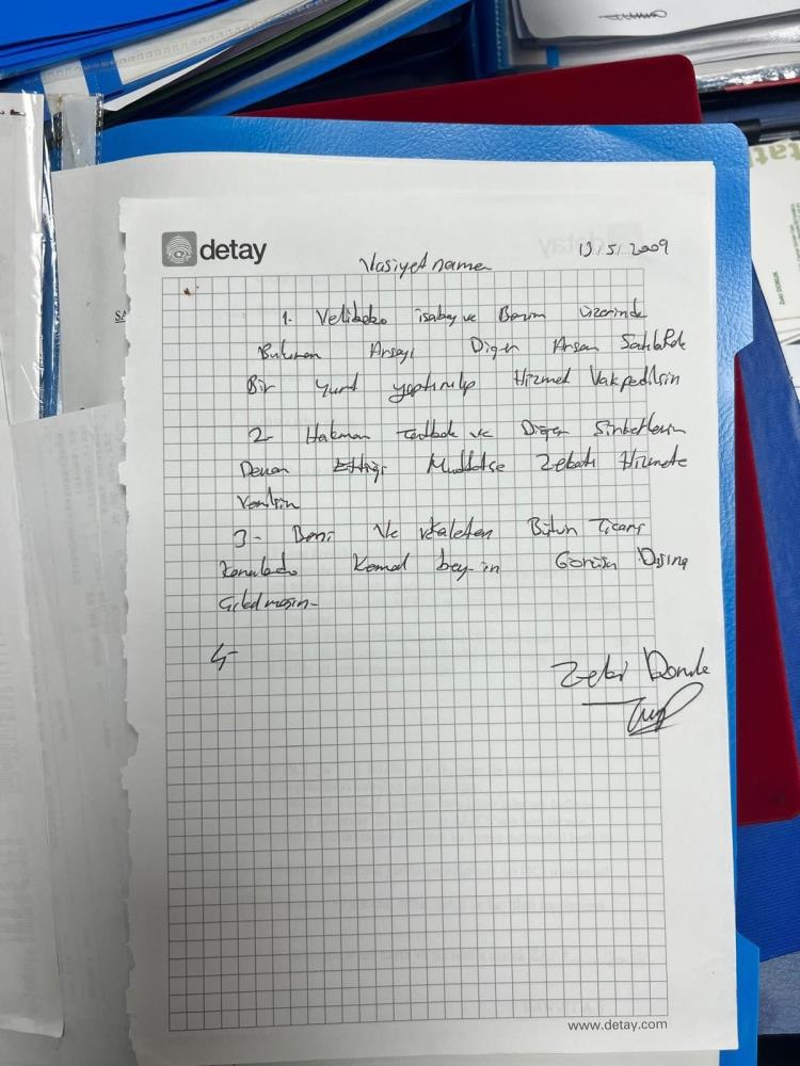 detay
Vasiyet name 19.5.2009
1. Velibaba isabey ve Benim üzerinde
Bulunan Arsayı Diğer Arsam Satılarak
Bir yurt yaptırılıp Hizmet Vakfedilsin
2- Hakman ve Diğer Şirketlerin
Devam Ettiği Müddetçe Zekatı Hizmete
Verilsin
3- Beni Ve vekaleten Bütün Ticari
Konularda Kemal bey-in Görüşü Dışına
Çıkılmasın-
4-
Zeki
www.detay.com